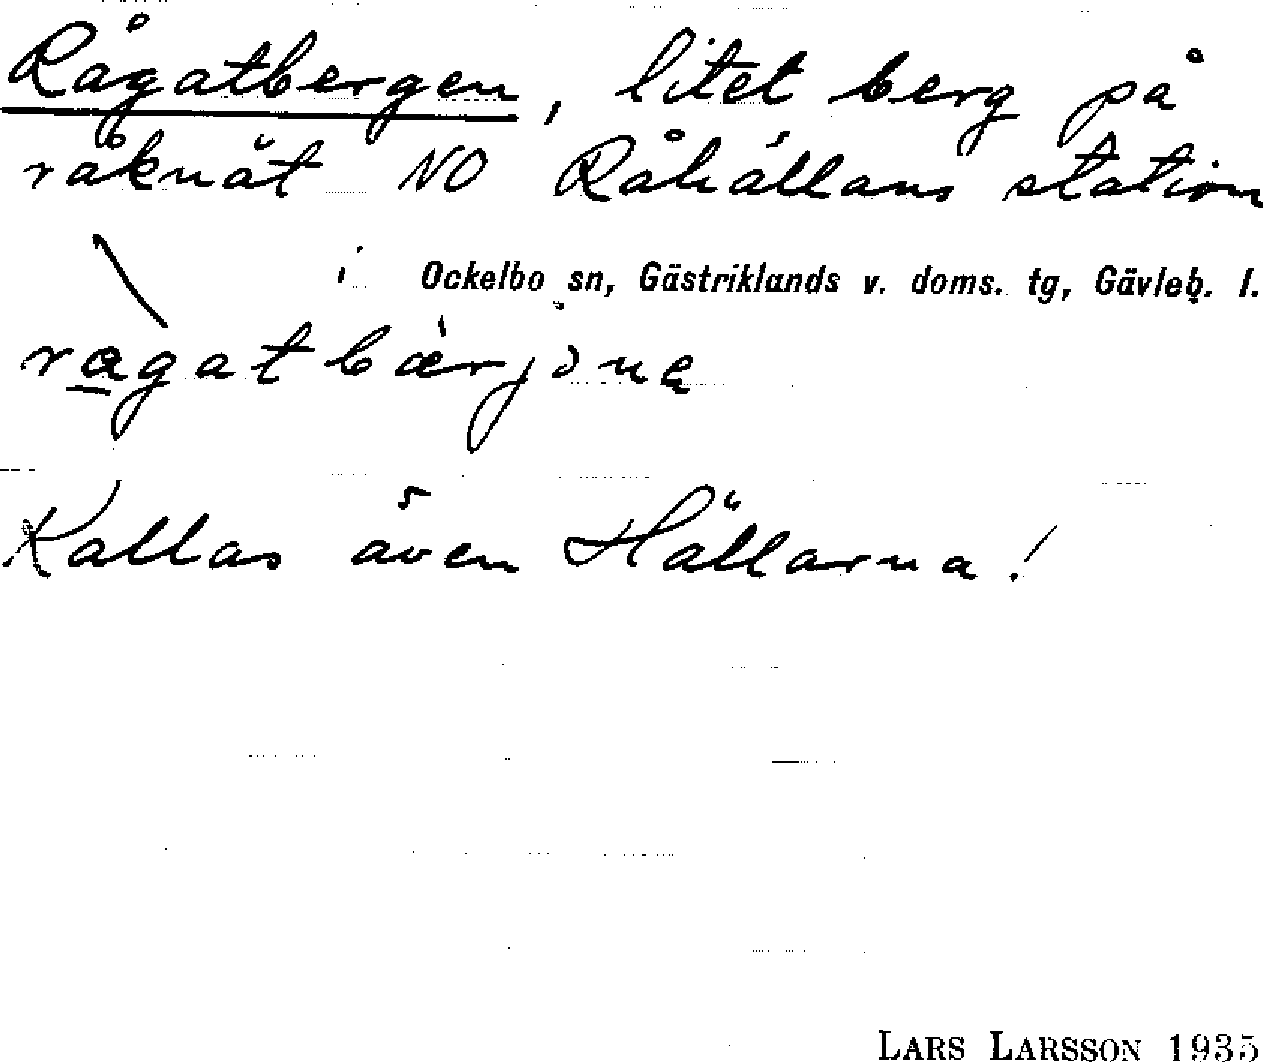 Rågatbergen, litet berg på
råknåt NO Råhällans station
i Ockelbo sn, Gästriklands v. doms. tg, Gävleb. l.
Kallas även Hällarna!
LARS LARSSON 1935